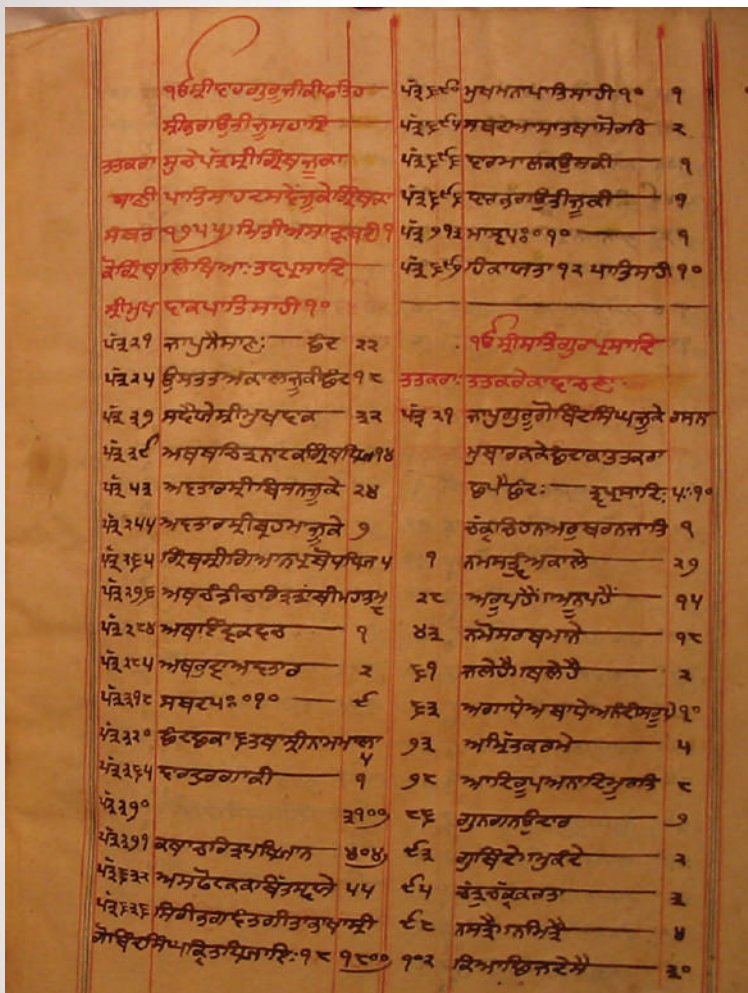 ੴ ਸ੍ਰੀ ਵਾਹਗੁਰੂ ਜੀ ਕੀ ਫਤਿਹ
ਸ੍ਰੀ ਭਗਉਤੀ ਜੂ ਸਹਾਇ
ਤਤਕਰਾ ਸੂਚੇ ਪੱਤ੍ਰ ਸ੍ਰੀ ਗ੍ਰਿੰਥ ਜੂ ਕਾ
ਬਾਣੀ ਪਾਤਿਸਾਹ ਦਸਵੇਂ ਜੂ ਕੇ ਗ੍ਰਿੰਥ ਕਾ
ਸੰਬਤ ੧੭੫੫ ਮਿਤੀ ਅਸਾੜ ਵਦੀ ੧
ਕੋ ਗ੍ਰਿੰਥ ਲਿਖਿਆ: ਤਵਪ੍ਰਸਾਦਿ
ਸ੍ਰੀ ਮੁਖ ਵਾਕ ਪਾਤਿਸਾਹੀ ੧੦
ਪੱਤ੍ਰ ੨੧ ਜਾਪੁ ਨੀਸਾਣ: ਛੰਦ ੨੨
ਪੱਤ੍ਰ ੨੫ ਉਸਤਤ ਅਕਾਲ ਜੂ ਕੀ ਛੰਦ ੧੮
ਪੱਤ੍ਰ ੩੭ ਸਵੈਯੇ ਸ੍ਰੀ ਮੁਖ ਵਾਕ ੩੨
ਪੱਤ੍ਰ ੩੯ ਅਥ ਬਚਿਤ੍ਰ ਨਾਟਕ ਗ੍ਰਿੰਥ ੧੪
ਪੱਤ੍ਰ ੫੩ ਅਵਤਾਰ ਸ੍ਰੀ ਬਿਸਨ ਜੂ ਕੇ ੨੪
ਪੱਤ੍ਰ ੨੪੪ ਅਵਤਾਰ ਸ੍ਰੀ ਬ੍ਰਹਮਾ ਜੂ ਕੇ ੭
ਪੱਤ੍ਰ ੨੬੫ ਗ੍ਰਿੰਥ ਸ੍ਰੀ ਗਿਆਨ ਪ੍ਰਬੋਧ ੫
ਪੱਤ੍ਰ ੨੭੬ ਅਥ ਚੰਡੀ ਚਰਿਤ੍ਰ
ਪੱਤ੍ਰ ੨੮੪ ੧
ਪੱਤ੍ਰ ੨੮੫ ਅਥ ਰੁਦ੍ਰ ਅਵਤਾਰ ੨
ਪੱਤ੍ਰ ੩੧੮ ਸਬਦ ਪ: ੧੦ ੯
ਪੱਤ੍ਰ ੩੨੦ ਛੰਦ ਛਕਾ ਸ੍ਰੀ ਨਾਮ ਮਾਲਾ ੫
ਪੱਤ੍ਰ ੩੬੫ ਵਾਰ ਦੁਰਗਾ ਕੀ ੧
ਪੱਤ੍ਰ ੩੭੦ ੩੧੦੭
ਪੱਤ੍ਰ ੩੭੧ ਕਥਾ ਚਰਿਤ੍ਰ ਪਖਿਆਨ ੪੦੪
ਪੱਤ੍ਰ ੬੩੨ ਅਸਫੋਟਕ ਕਬਿੱਤ ਸ੍ਵਯੇ ੫੫
ਪੱਤ੍ਰ ੬੩੬ ਸਿਰੀ ਭਗਵਤ ਗੀਤਾ ਭਾਖਾ ਸ੍ਰੀ
ਗੋਬਿੰਦ ਸਿੰਘ ਕ੍ਰਿਤ ਧਿਆਇ: ੧੮ ੧੮੦੦
ਪੱਤ੍ਰ ੬੯੦ ਮੁਖਮਨਾ ਪਾਤਿਸਾਹੀ ੧੦ ੧
ਪੱਤ੍ਰ ੬੯੫ ਸਬਦ ਆਸਾ ਤਥਾ ਸੋਰਠਿ ੨
ਪੱਤ੍ਰ ੬੯੬ ਵਾਰ ਮਾਲਕਉਸ ਕੀ ੧
ਪੱਤ੍ਰ ੬੯੬ ਵਾਰ ਭਗਉਤੀ ਜੂ ਕੀ ੧
ਪੱਤ੍ਰ ੭੧੩ ਮਾਝ ਪ: ੧੦ ੧
ਪੱਤ੍ਰ ੬੯੭ ਹਿਕਾਯਤਾ ੧੨ ਪਾਤਿਸਾਹੀ ੧੦
ੴ ਸ੍ਰੀ ਸਤਿਗੁਰ ਪ੍ਰਸਾਦਿ
ਤਤਕਰਾ: ਤਤਕਰੇ ਕਾ
ਪੱਤ੍ਰ ੨੧ ਜਾਪੁ ਗੁਰੂ ਗੋਬਿੰਦ ਸਿੰਘ ਜੂ ਕੇ ਰਸਨ
ਮੁਬਾਰਕ ਕੇ ਛੰਦ ਕਾ ਤਤਕਰਾ
ਛਪੈ ਛੰਦ: ਤ੍ਵਪ੍ਰਸਾਦਿ: ਪ: ੧੦
ਚੱਕ੍ਰ ਚਿਹਨ ਅਰੁ ਬਰਨ ਜਾਤਿ ੧
੧ ਨਮਸਤ੍ਵੰ ਅਕਾਲੇ ੨੭
੨੮ ਅਰੂਪ ਹੈਂ। ਅਨੂਪ ਹੈਂ ੧੫
੪੩ ਨਮੋ ਸਰਬ ਮਾਨੇ ੧੮
੬੧ ਜਲੇ ਹੈਂ। ਥਲੇ ਹੈਂ ੨
੬੩ ਅਗਾਧੇ ਅਬਾਧੇ ਅਨੰਦੀ ਸਰੂਪੇ ੧੦
੭੩ ਅਮ੍ਰਿਤ ਕਰਮੇ ੫
੭੮ ਆਦਿ ਰੂਪ ਅਨਾਦਿ ਮੂਰਤਿ ੮
੮੬ ਗੁਨ ਗਨ ਉਦਾਰ ੭
੯੩ ਗੁਬਿੰਦੇ। ਮੁਕੰਦੇ ੨
੯੫ ਚੱਤ੍ਰ ਚੱਕ੍ਰ ਕਰਤਾ ੩
੯੮ ਨ ਸਤ੍ਰੈ। ਨ ਮਿਤ੍ਰੈ ੪
੧੦੨ ਕਿ ਆਛਿੱਜ ਦੇਸੈ ੩੦